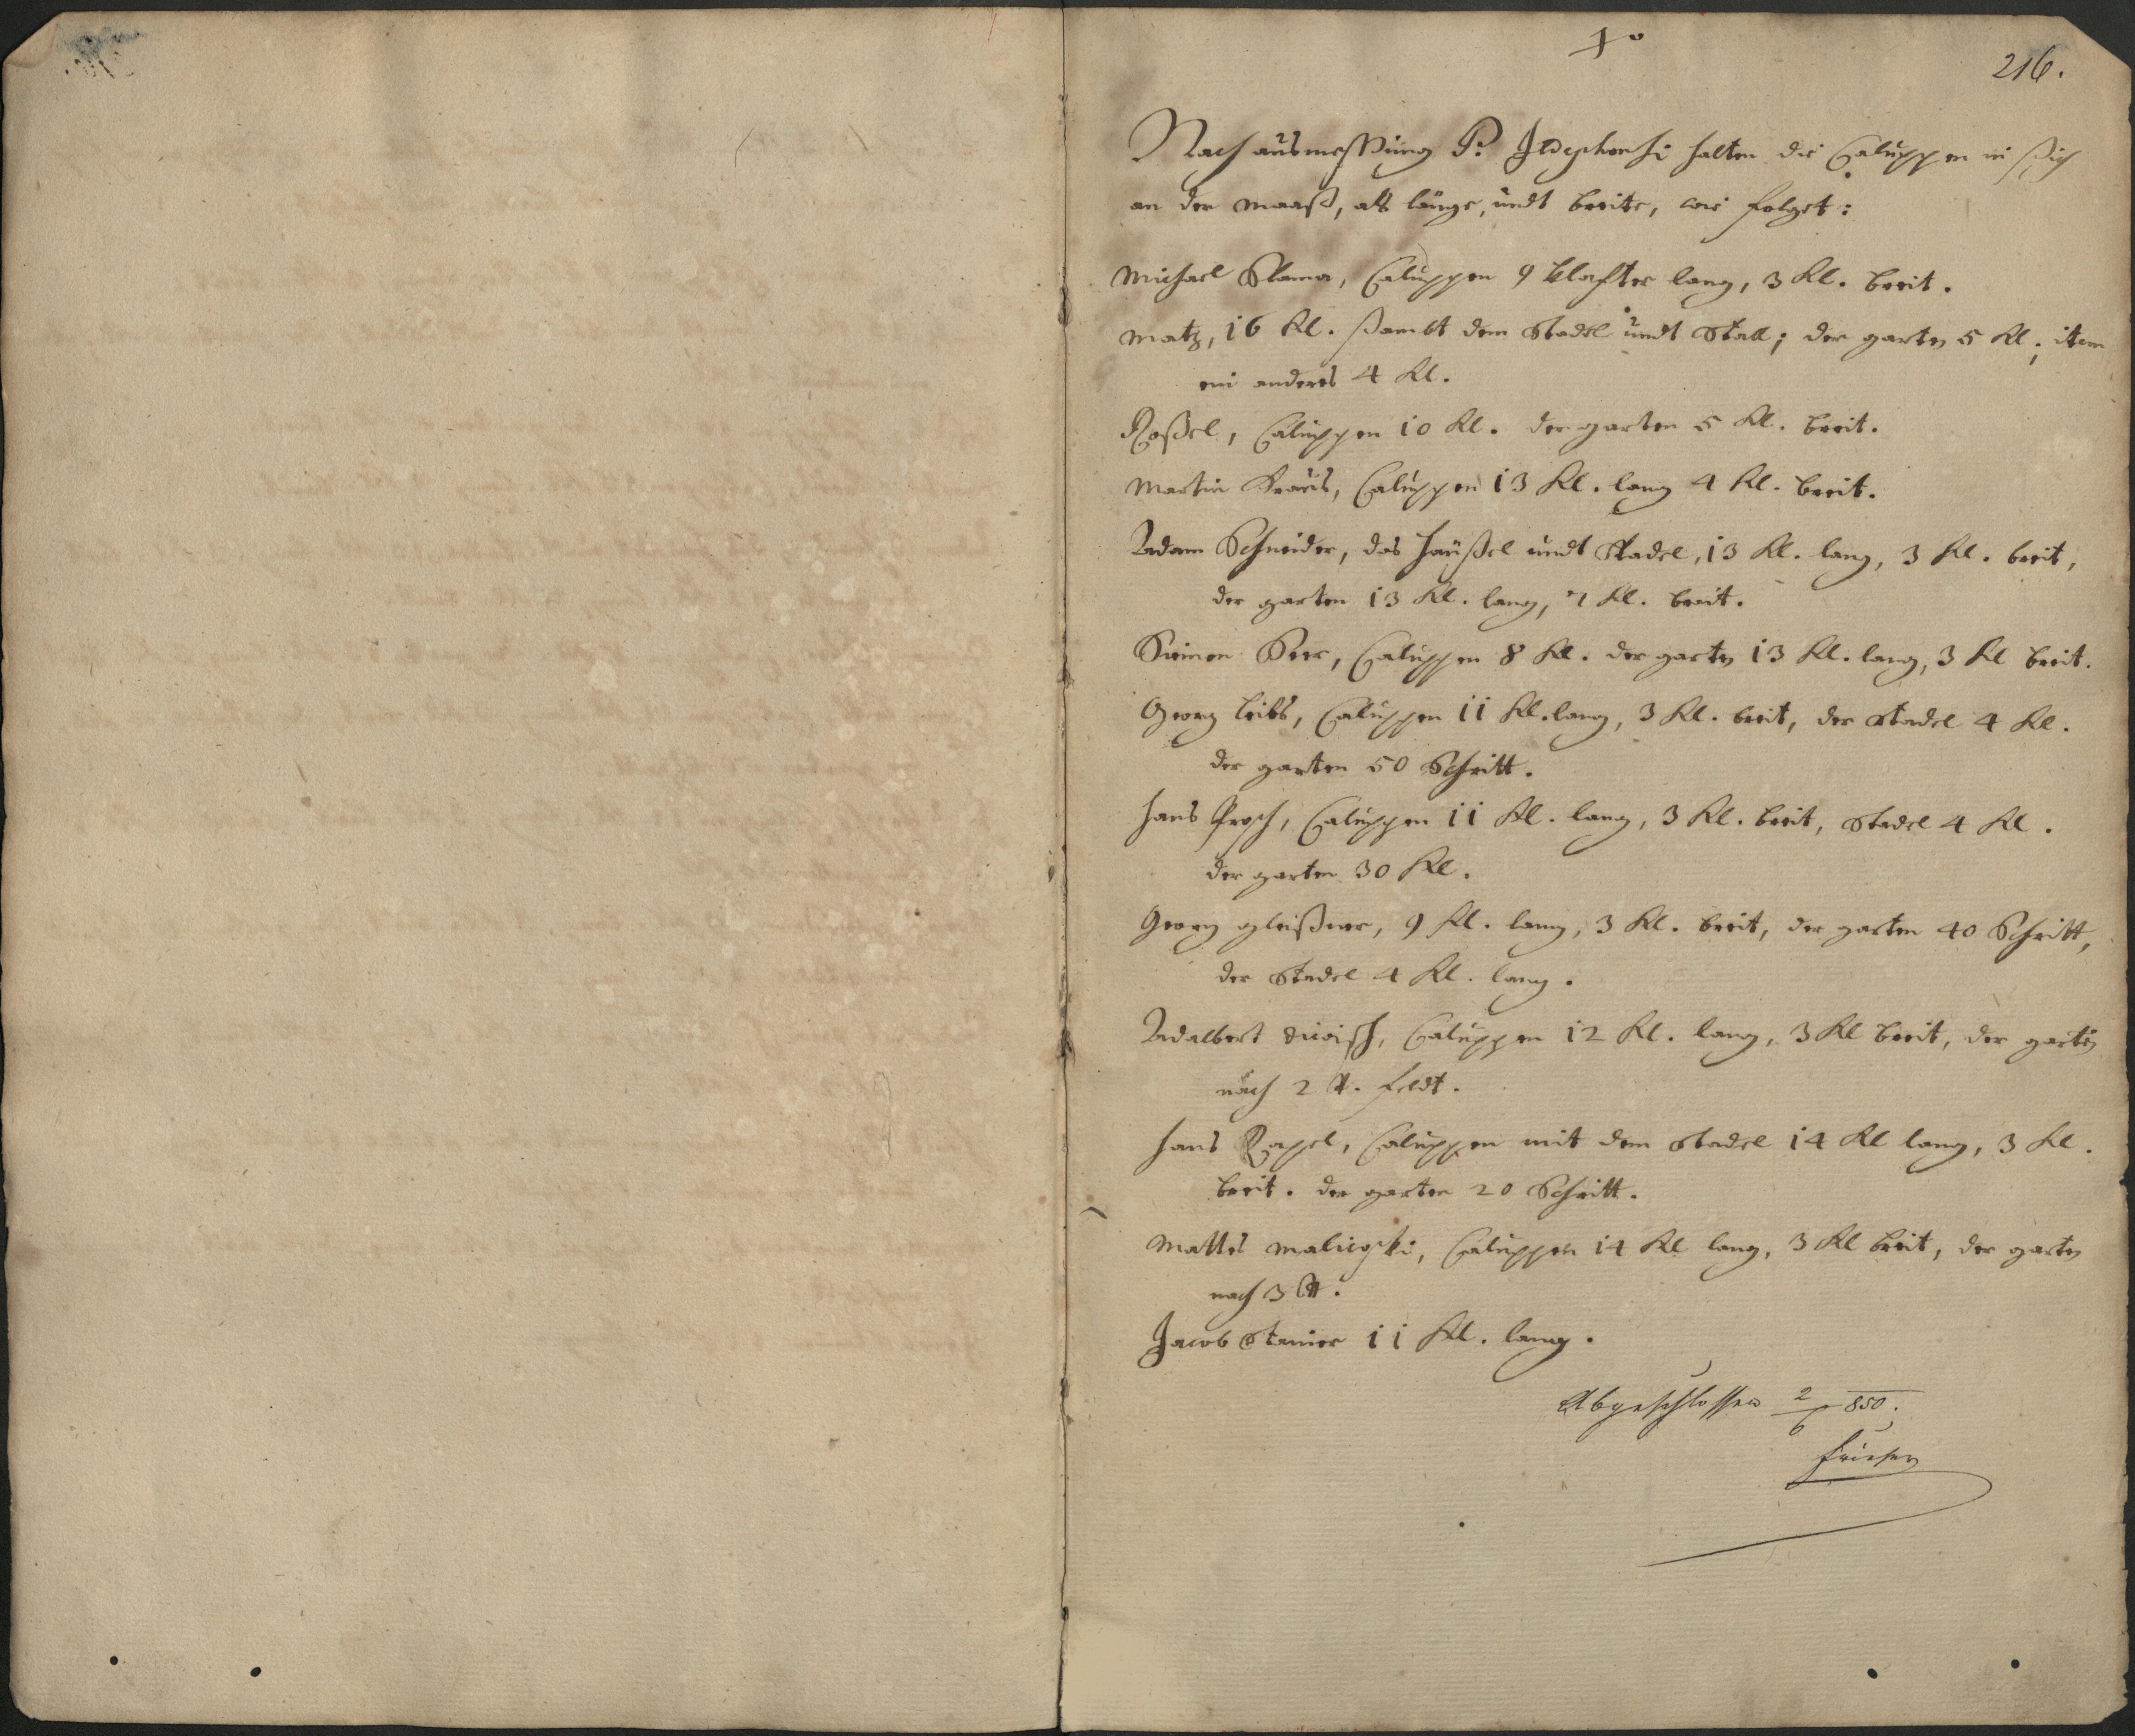 216.
Nach ausmessung P. Ildephonsi halten die Caluppen in sich
an der maaß, als länge, undt breite, wie folget:
Michael Slama, Caluppen 9 Klafter lang, 3 Kl. breit.
Matz, 16 Kl. sambt dem Stadel undt Stall; der garten 5 Kl; item
ein anderes 4 Kl.
Roßel, Caluppen 10 Kl. der garten 5 Kl. breit.
Martin Kraus, Caluppen 13 Kl. lang 4 Kl. breit.
Adam Schneider, das Häußel undt Stadel, 13 Kl. lang, 3 Kl. breit,
der garten 13 Kl. lang, 7 Kl. breit.
Simon Beer, Caluppen 8 Kl. der garten 13 Kl. lang, 3 Kl breit.
Georg Leibs, Caluppen 11 Kl. lang, 3 Kl. breit, der Stadel 4 Kl.
der garten 50 Schritt.
Hans Prosch, Caluppen 11 Kl. lang, 3 Kl. breit, Stadel 4 Kl.
der garten 30 Kl.
Georg gleißner, 9 Kl. lang, 3 Kl. breit, der garten 40 Schritt,
der Stadel 4 Kl. lang.
Adalbert Caluppen 12 Kl. lang, 3 Kl breit, der garten
nach 2 feldt.
Hans Caluppen mit dem Stadel 14 Kl lang, 3 Kl.
breit. der garten 20 Schritt.
Mattes Caluppen 14 Kl lang, 3 Kl breit, der garten
nach 3
Jacob 11 Kl. lang.
Abgeschlossen 2/6 850.